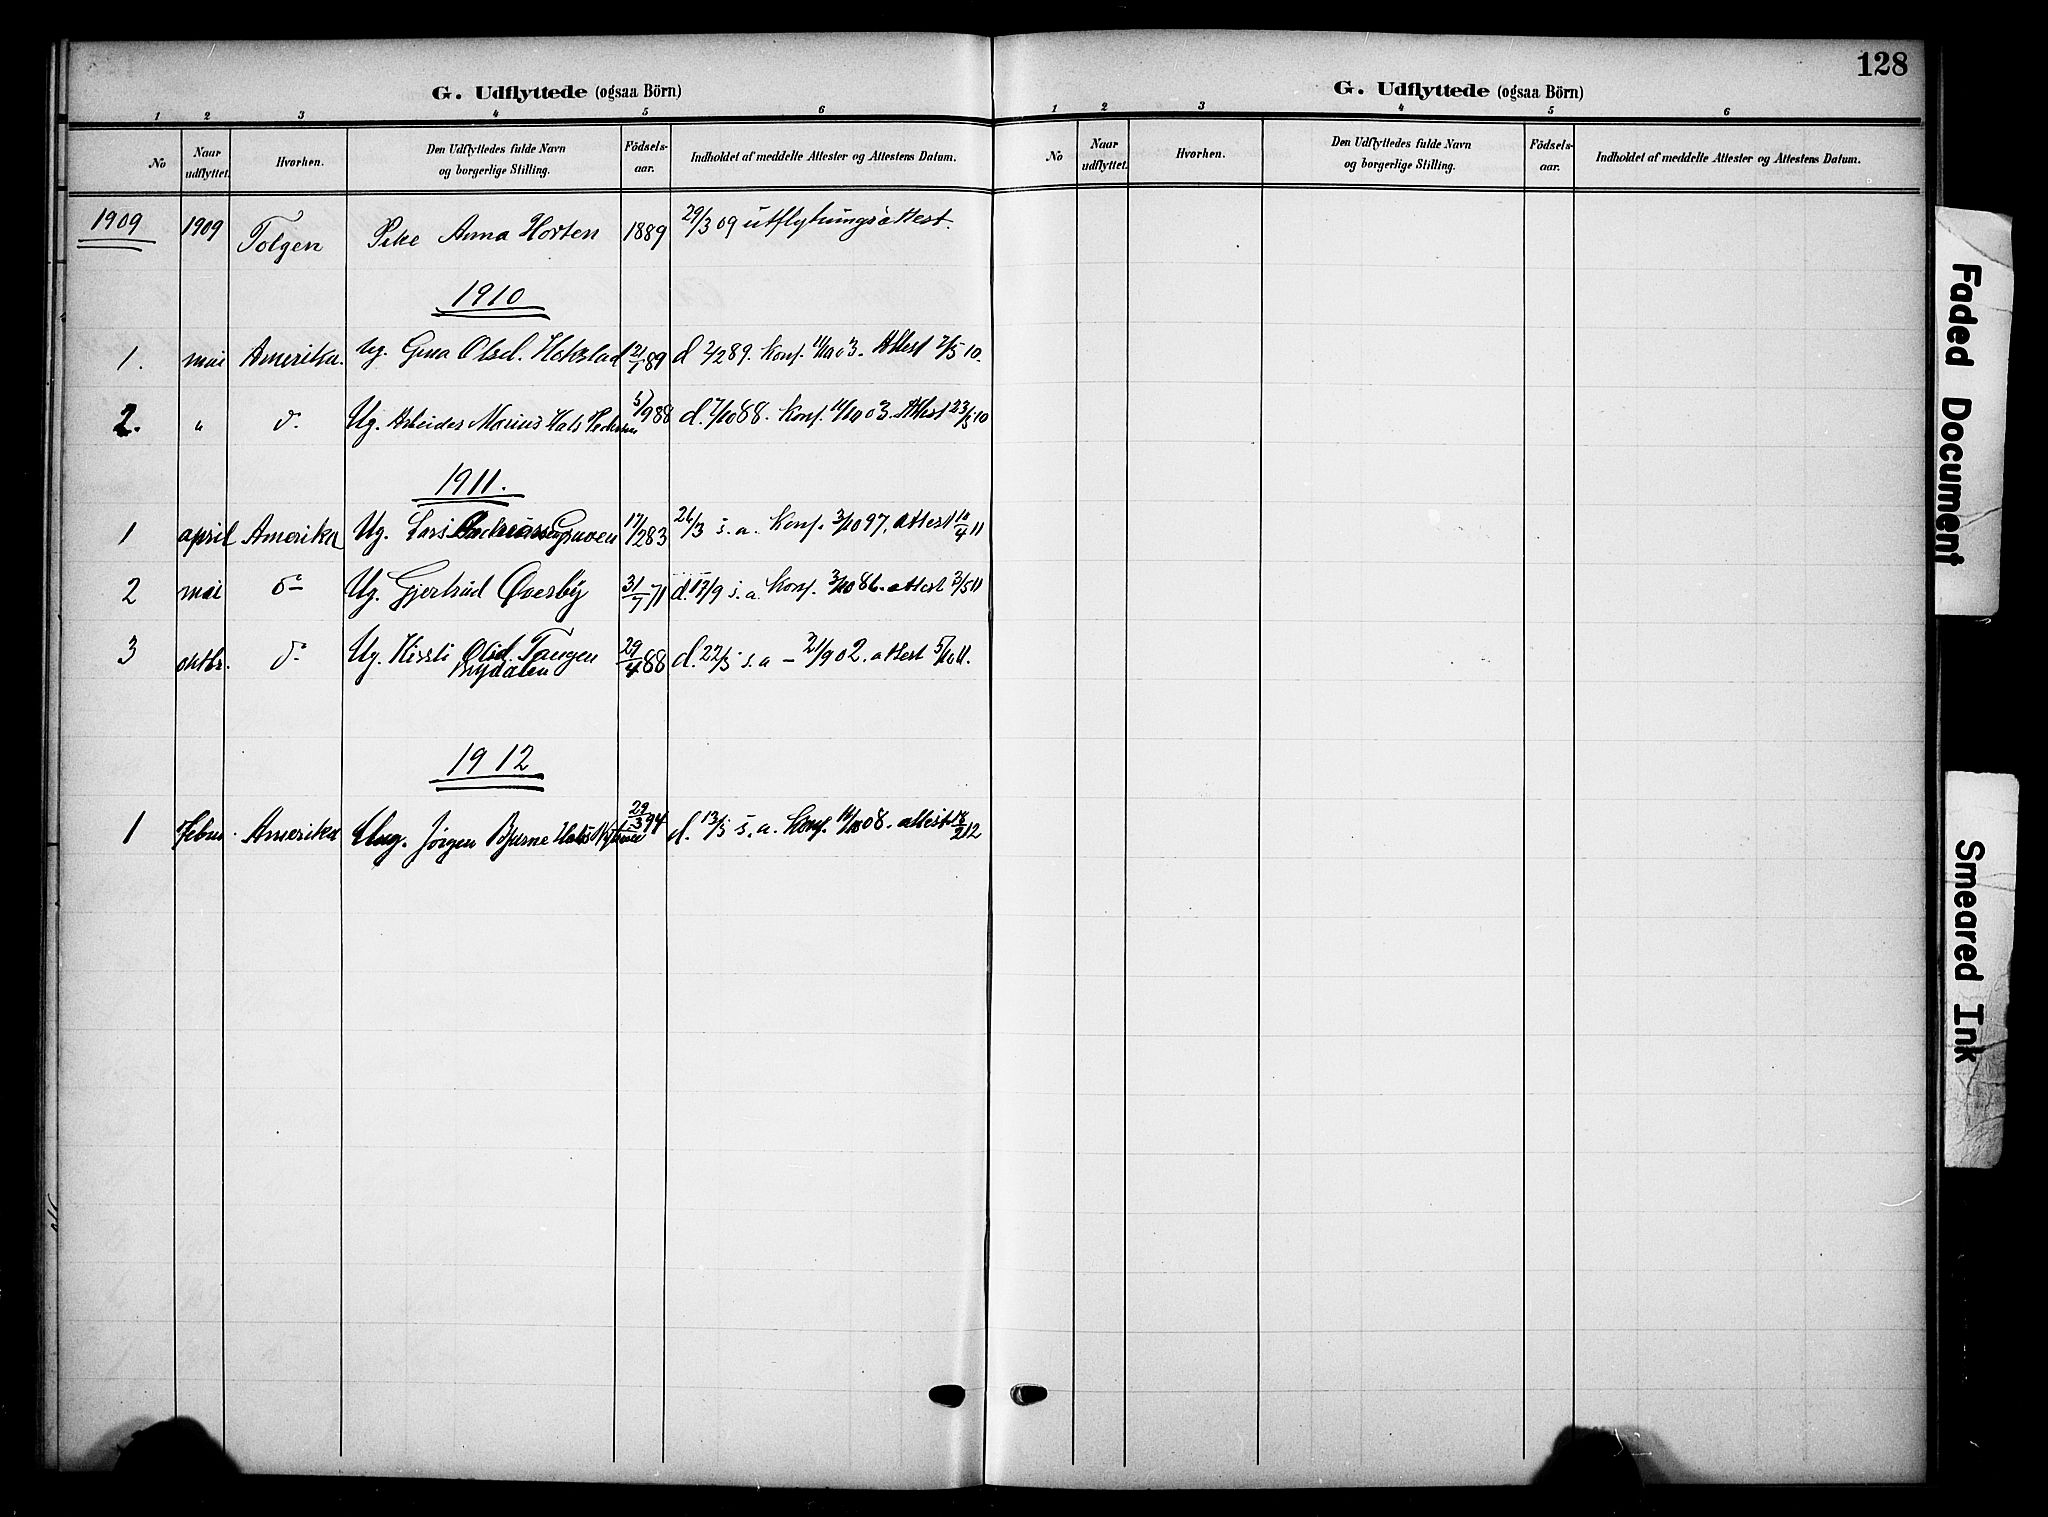 128
G. Udflyttede (ogsaa Börn)
1 2 3 4 5 6
No Naar udflyttet. Hvorhen. Den Udflyttedes fulde Navn og borgerlige Stilling. Födsels-aar. Indholdet af meddelte Attester og Attestens Datum.
1909 1909 Tolgen Pike Anna Horten 1889 29/3 09 utflytningsattest.
1910
1. mai Amerika. Ug. Gina Olsd. Hokstad 21/1 89 d 2/2 89. Konf. 11/10 03. Attest 2/5 10.
2. " do Ug. Arbeider Marius Hals Pedersen 5/9 88 d. 7/10 88. Konf. 11/10 03. Attest 23/5 10
1911.
1 april Amerika Ug. Lars Graven 17/2 83 26/3 s. a. Konf. 3/10 97. attest 10/4 11
2 mai do Ug. Gjertrud Øverby 31/7 71 d. 17/9 s. a. Konf. 3/10 86. attest 3/5 11
3 oktbr. do Ug. Kirsti Olsd. Tangen Brydalen 29/4 88 d. 22/5 s. a – 21/9 02. attest 5/10 11.
1912
1 Febru. Amerika Ung. Jörgen Bjarne 29/3 94 d. 13/5 s. a. Konf. 11/10 08. attest 18/2 12
G. Udflyttede (ogsaa Börn)
1 2 3 4 5 6
No Naar udflyttet. Hvorhen. Den Udflyttedes fulde Navn og borgerlige Stilling. Födsels-aar. Indholdet af meddelte Attester og Attestens Datum.
Faded Document
Smeared Ink